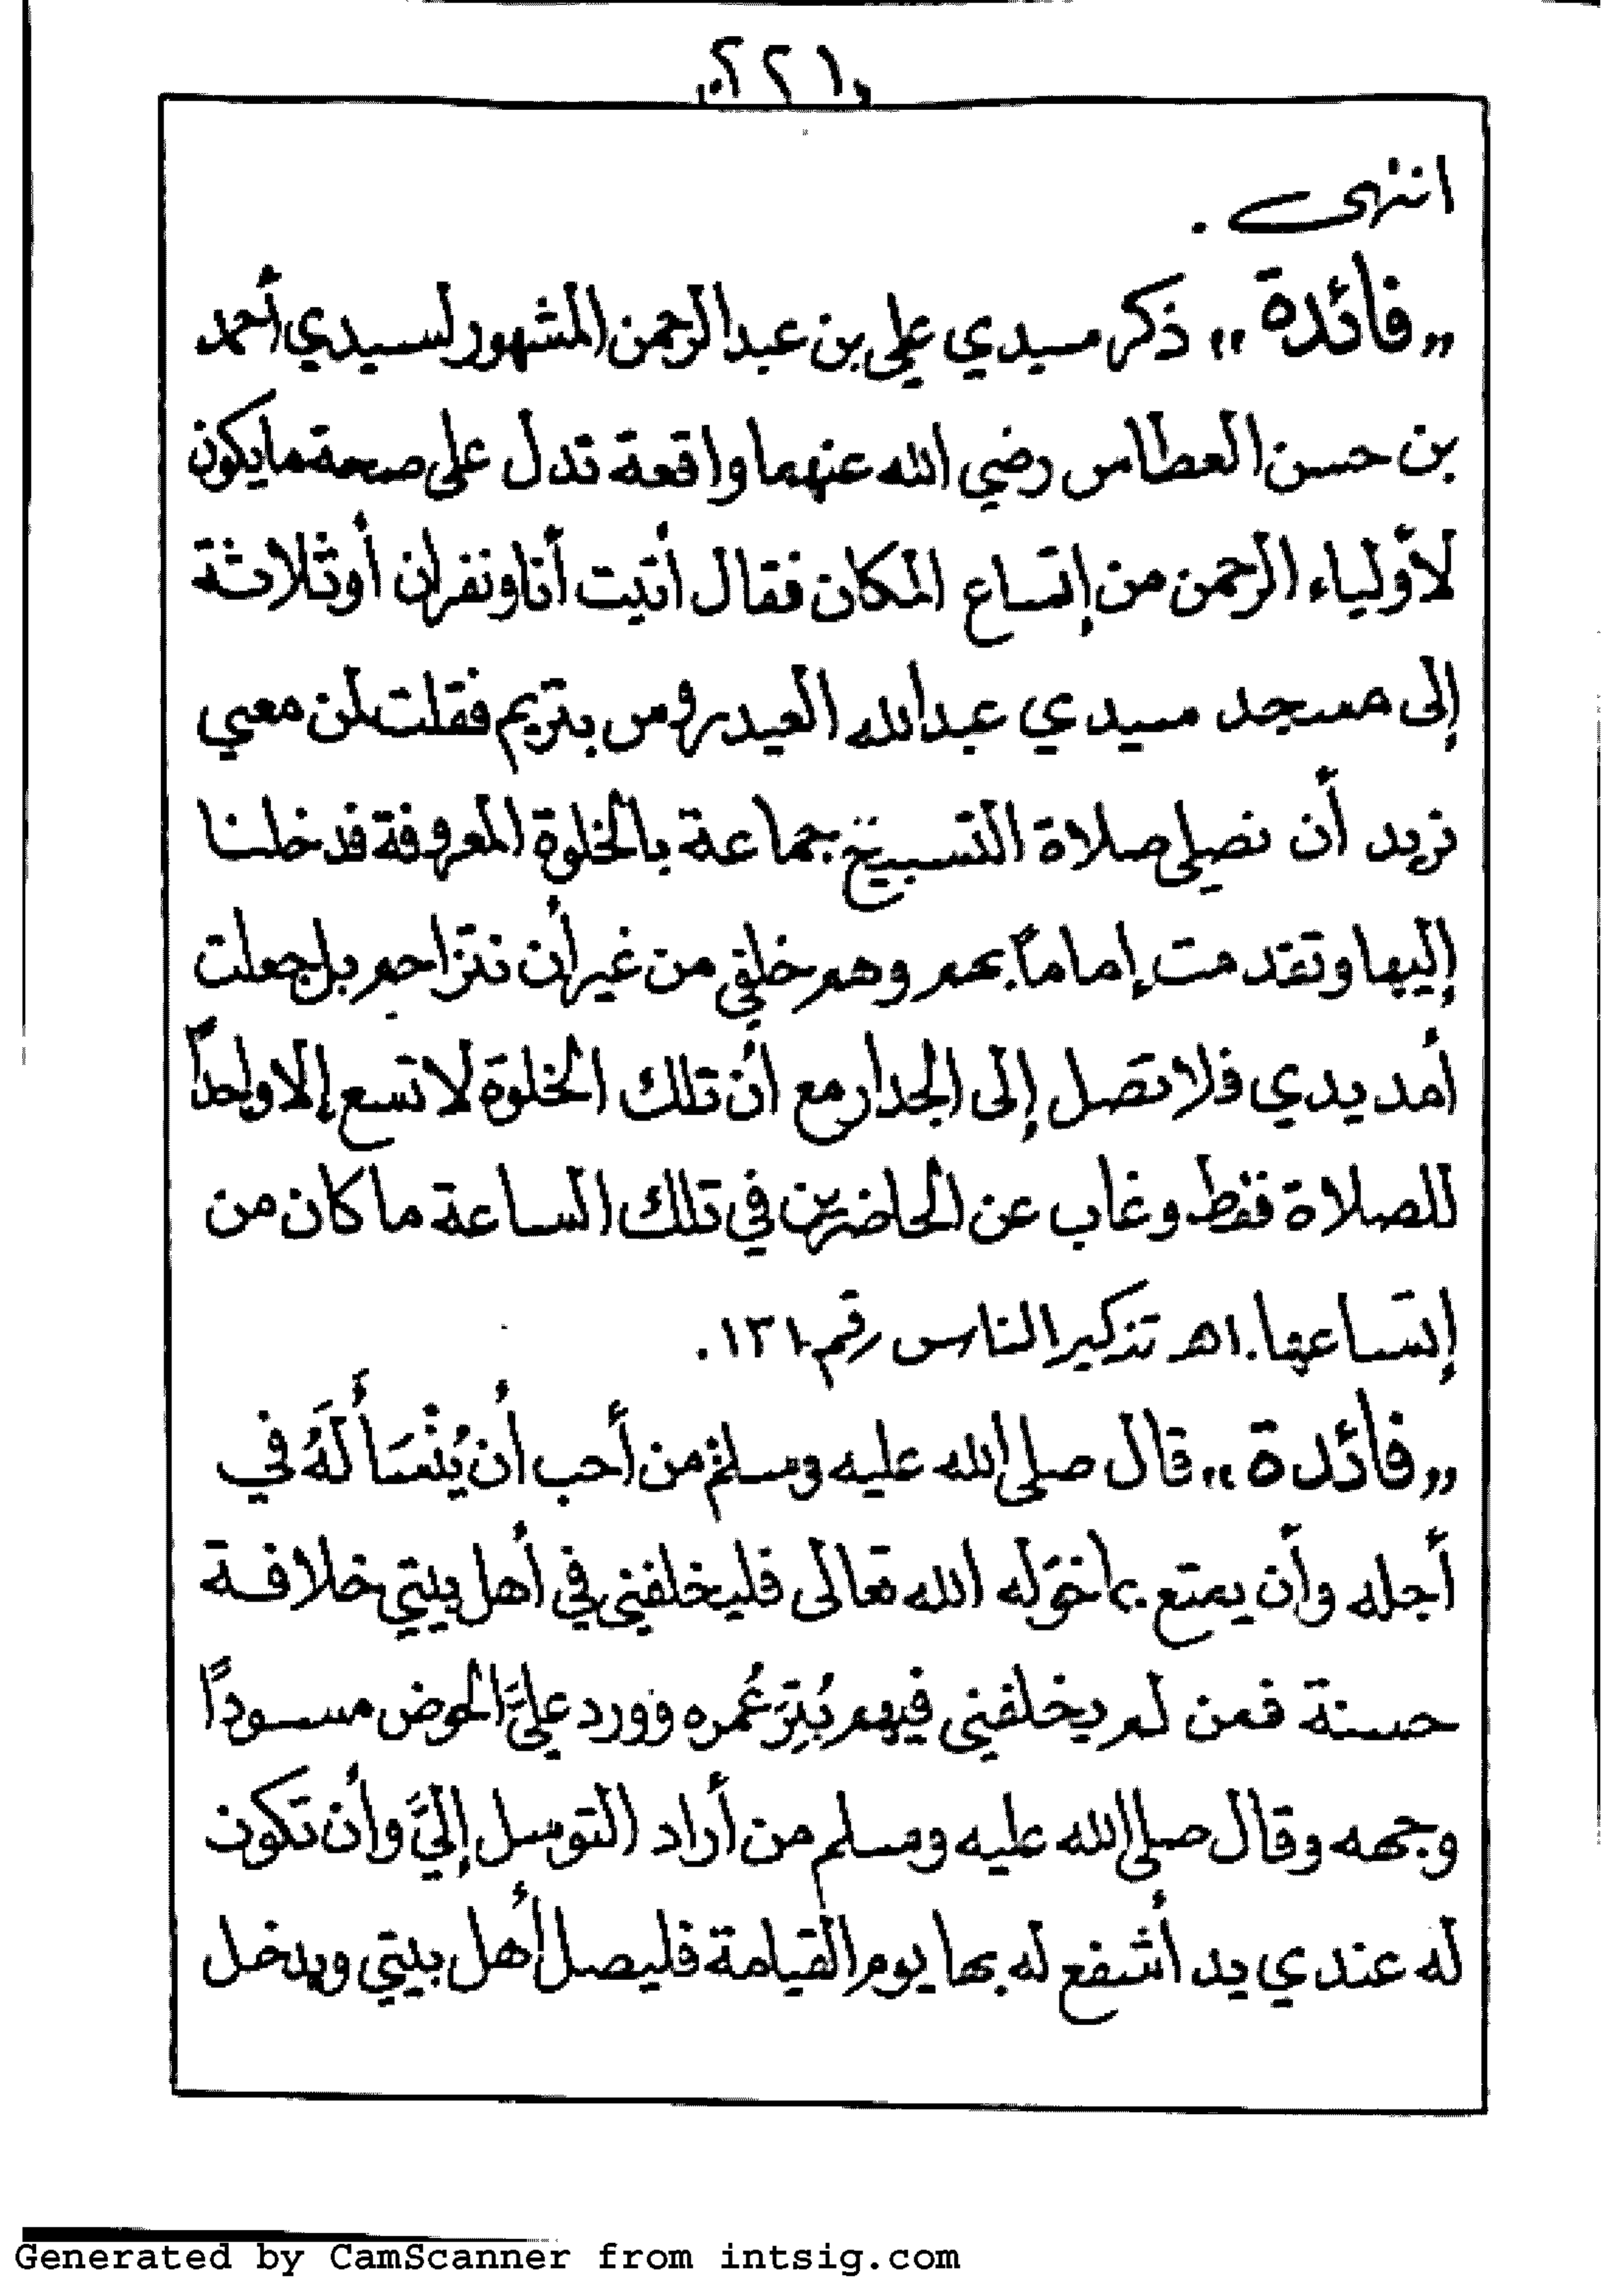 ٢٢١
انتهى .
„فائدة„ ذكر سيدي علي بن عبدالرحمن المشهور لسيدي أحمد
بن حسن العطاس رضي الله عنهما واقعة تدل على صحة مايكون
لأولياء الرحمن من إتساع المكان فقال أتيت أنا ونفران أوثلاثة
إلى مسجد سيدي عبدالله العيدروس بتريم فقلت لمن معي
نريد أن نصلي صلاة التسبيح جماعة بالخلوة المعروفة فدخلنا
إليها وتقدمت إماماً بهم وهم خلفي من غير أن نتزاحم بل جعلت
أمد يدي فلا تصل إلى الجدار مع أن تلك الخلوة لا تسع إلا واحداً
للصلاة فقط وغاب عن الحاضرين في تلك الساعة ما كان من
إتساعها. اهـ تذكير الناس رقم ١٣١ .
„فائدة„ قال صلى الله عليه وسلم من أحب أن يُنْسَأَ لَهُ في
أجله وأن يمتع بما خوّله الله تعالى فليخلفني في أهل بيتي خلافة
حسنة فمن لم يخلفني فيهم بُتِرَ عُمره وورد عليَّ الحوض مسوداً
وجهه وقال صلى الله عليه وسلم من أراد التوسل إليَّ وأن تكون
له عندي يد أشفع له بها يوم القيامة فليصل أهل بيتي ويدخل
Generated by CamScanner from intsig.com